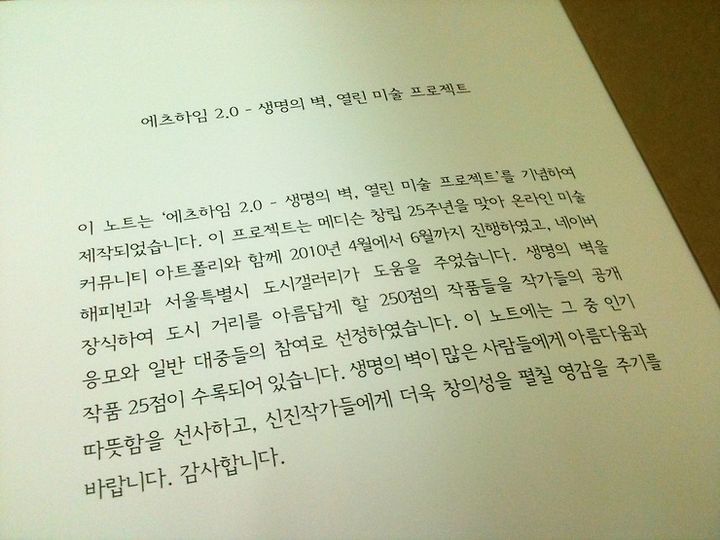 에츠하임 2.0 - 생명의 벽, 열린 미술 프로젝트
이 노트는 '에츠하임 2.0 - 생명의 벽, 열린 미술 프로젝트'를 기념하여
제작되었습니다. 이 프로젝트는 메디슨 창립 25주년을 맞아 온라인 미술
커뮤니티 아트폴리와 함께 2010년 4월에서 6월까지 진행하였고, 네이버
해피빈과 서울특별시 도시갤러리가 도움을 주었습니다. 생명의 벽을
장식하여 도시 거리를 아름답게 할 250점의 작품들을 작가들의 공개
응모와 일반 대중들의 참여로 선정하였습니다. 이 노트에는 그 중 인기
작품 25점이 수록되어 있습니다. 생명의 벽이 많은 사람들에게 아름다움과
따뜻함을 선사하고, 신진작가들에게 더욱 창의성을 펼칠 영감을 주기를
바랍니다. 감사합니다.